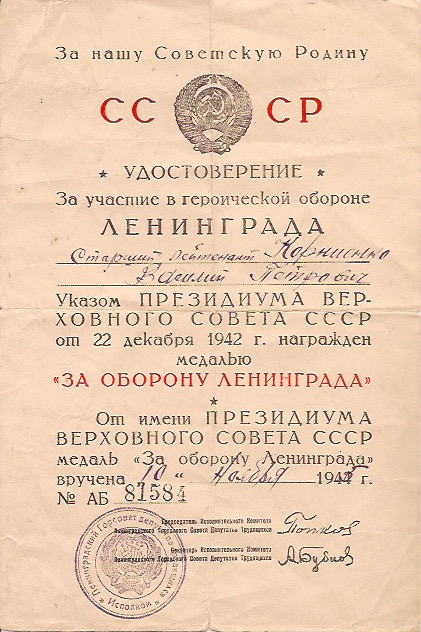 За нашу Советскую Родину
СС СР
★ УДОСТОВЕРЕНИЕ ★
За участие в героической обороне
ЛЕНИНГРАДА
Старший лейтенант Корниенко
Василий Петрович
Указом ПРЕЗИДИУМА ВЕР-
ХОВНОГО СОВЕТА СССР
от 22 декабря 1942 г. награжден
медалью
«ЗА ОБОРОНУ ЛЕНИНГРАДА»
★
От имени ПРЕЗИДИУМА
ВЕРХОВНОГО СОВЕТА СССР
медаль «За оборону Ленинграда»
вручена „10“ Ноября 194 г.
№ АБ 81584
Председатель Исполнительного Комитета
Ленинградского Городского Совета Депутатов Трудящихся Попков
Секретарь Исполнительного Комитета
Ленинградского Городского Совета Депутатов Трудящихся А Бубнов
Ленинградский Горсовет депутатов трудящихся
Исполком